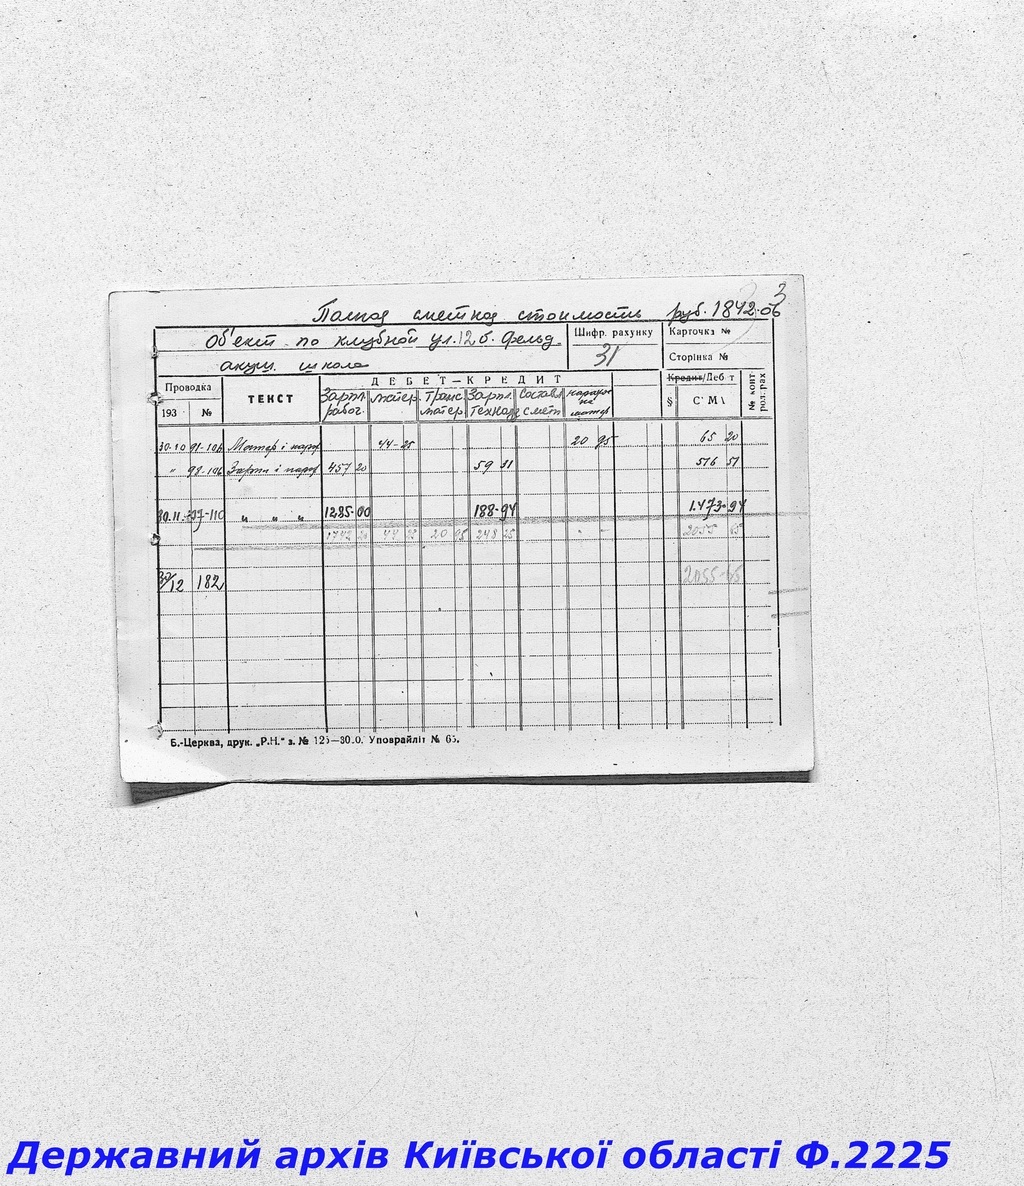 3
сметной стоимость руб. 1842-06
Об'ект по клубной ул. 12 б. Фельд. Шифр. рахунку Карточка №
акуш. школа 31 Сторінка №
Проводка ТЕКСТ ДЕБЕТ—КРЕДИТ Кредит/Деб т № конт рол.рах
193 № Зарпл. рабог. матер. Транс. матер. Зарпл. Состав смет § С М
30-10 91-106 Матер і 44-25 20 95 65 20
" 98-106 Зарпл і 457 20 59 31 516 51
30.11 -110 " " " 1285-00 188-94 1473-94
1742 20 44 25 20 95 248 25 2055 65
30/12 182 2055-65
Б.-Церква, друк. „Р.Н." з. № 125—30.0. Уповрайліт № 65.
Державний архів Київської області Ф.2225